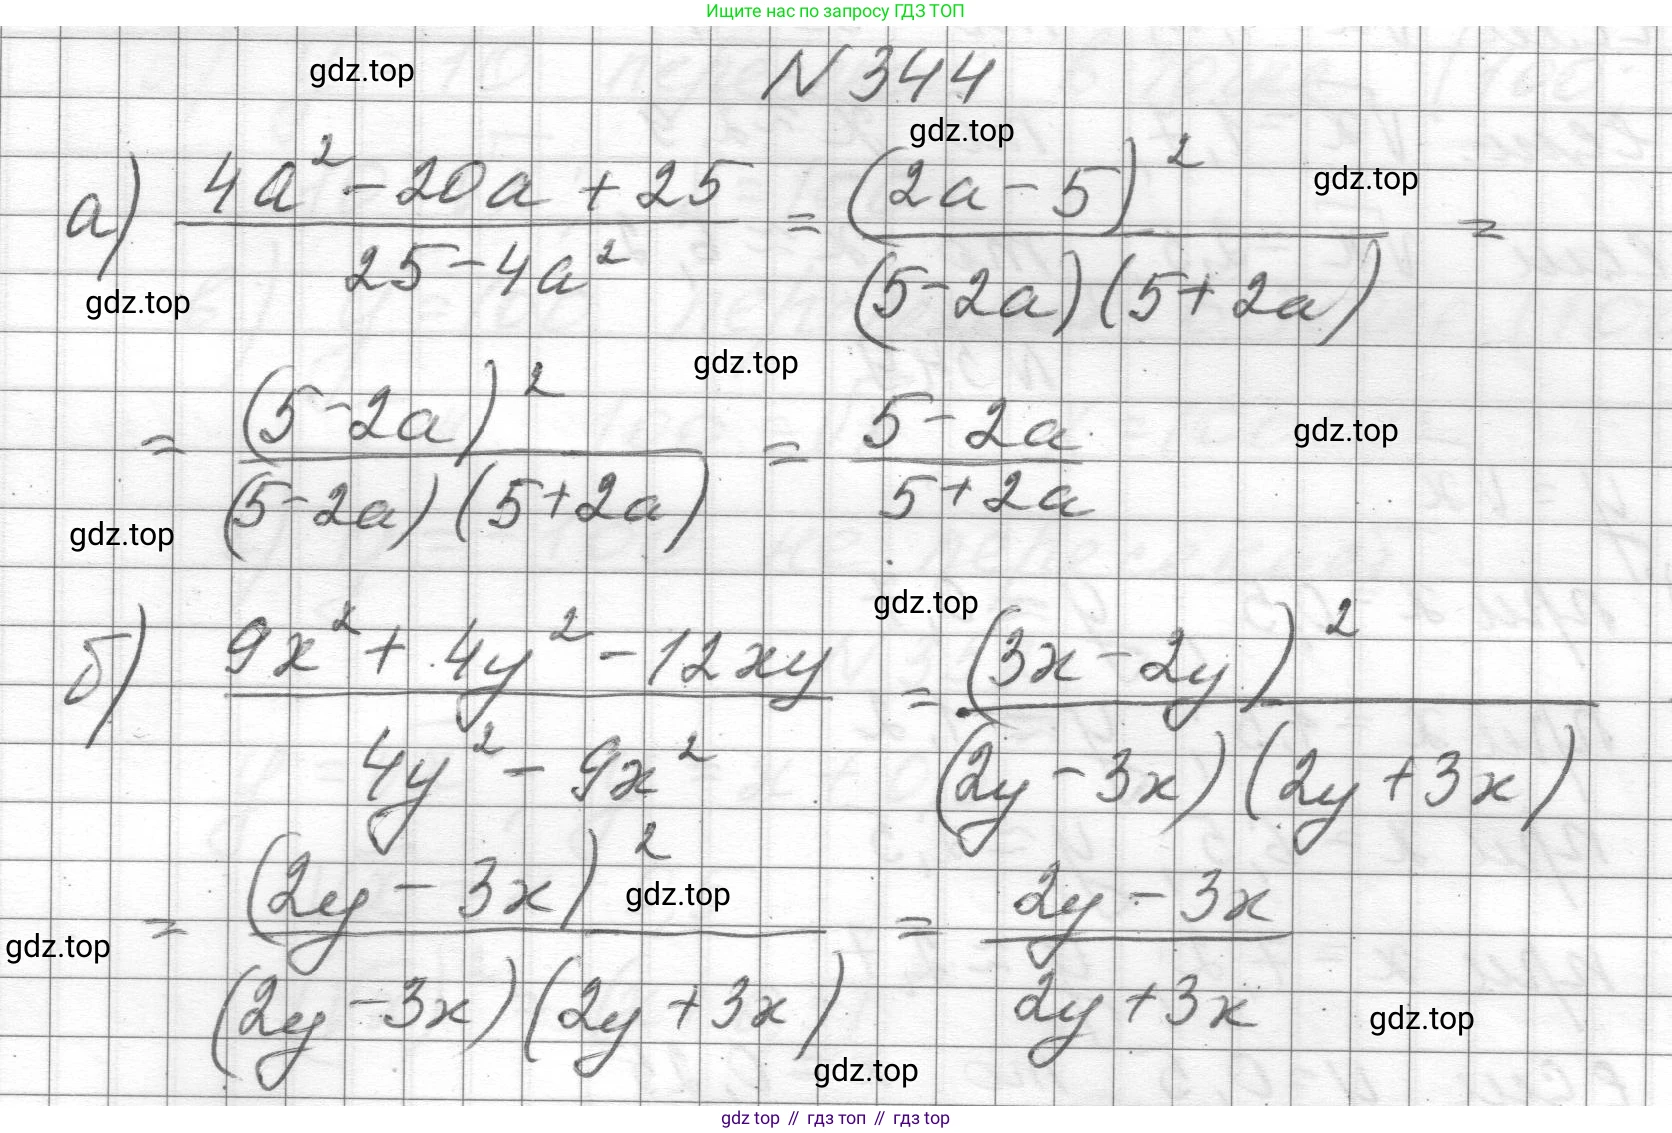 Ищите нас по запросу ГДЗ ТОП
N 344
gdz.top
gdz.top
gdz.top
а) (4a² - 20a + 25)/(25 - 4a²) = (2a - 5)²/((5 - 2a)(5 + 2a)) =
gdz.top
gdz.top
gdz.top
= (5 - 2a)²/((5 - 2a)(5 + 2a)) = (5 - 2a)/(5 + 2a)
gdz.top
gdz.top
б) (9x² + 4y² - 12xy)/(4y² - 9x²) = (3x - 2y)²/((2y - 3x)(2y + 3x))
gdz.top
gdz.top
= (2y - 3x)²/((2y - 3x)(2y + 3x)) = (2y - 3x)/(2y + 3x)
gdz.top
gdz.top
gdz top // гдз топ // гдз top